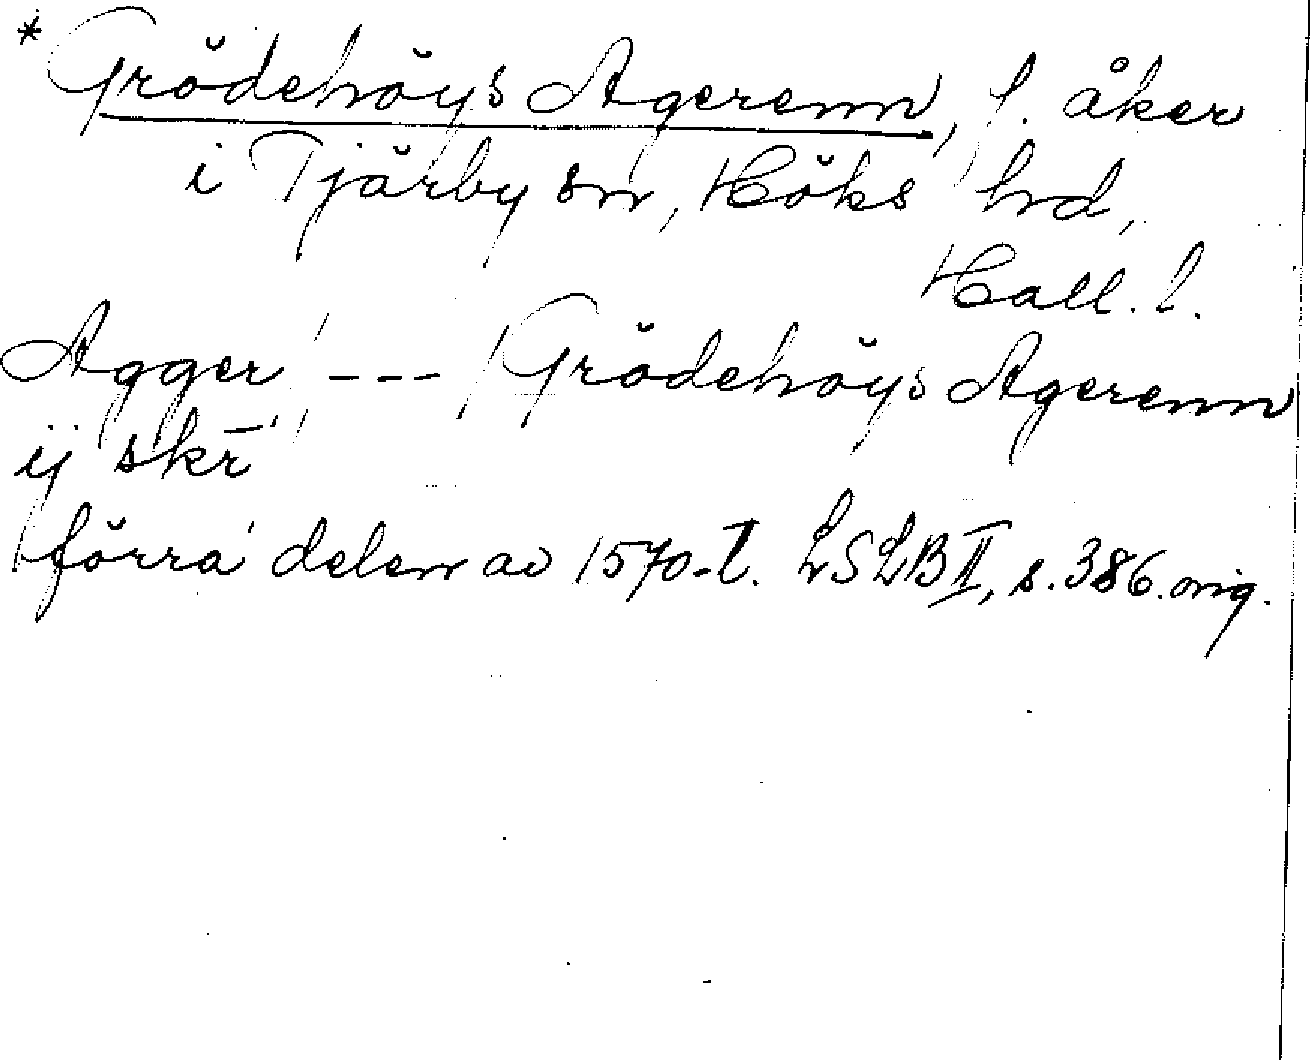 *Grödehöys Agerenn, f. åker
i Tjärby sn, Höks hd,
Hall. l.
Agger --- Grödehöys Agerenn
ij skr̄
förra delen av 1570-t. LSLB II, s. 386. orig.